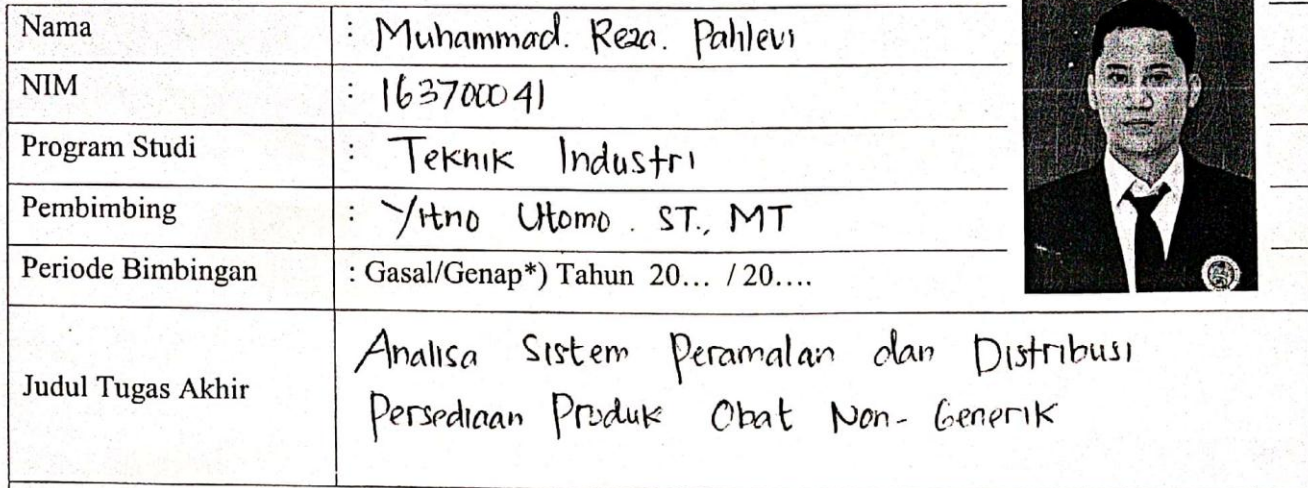 Nama : Muhammad. Reza. Pahlevi
NIM : 163700041
Program Studi : Teknik Industri
Pembimbing : Yitno Utomo. ST., MT
Periode Bimbingan : Gasal/Genap*) Tahun 20... / 20....
Judul Tugas Akhir
Analisa Sistem Peramalan dan Distribusi
Persediaan Produk Obat Non-Generik